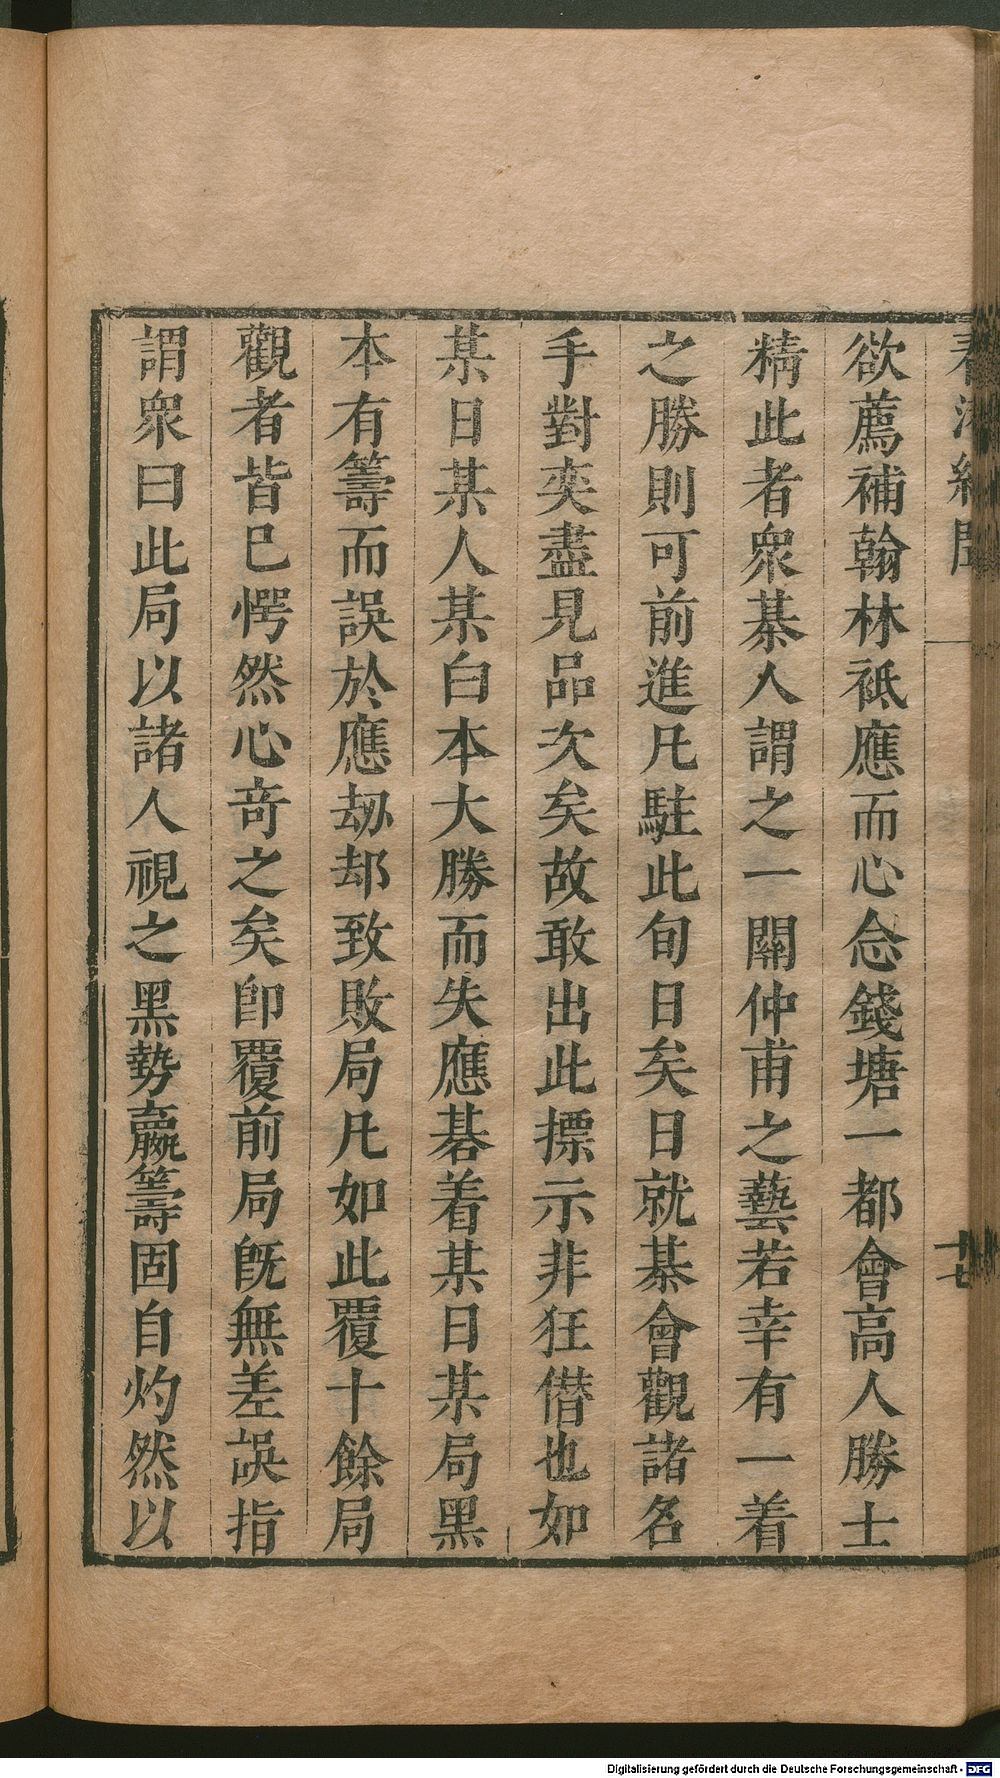 春渚紀聞
十七
欲薦補翰林祗應而心念錢塘一都會高人勝士
精此者衆棊人謂之一關仲甫之藝若幸有一着
之勝則可前進凡駐此旬日矣日就棊會觀諸名
手對奕盡見品次矣故敢出此摽示非狂僣也如
某日某人某白本大勝而失應碁着某日某局黑
本有籌而誤於應刼却致敗局凡如此覆十餘局
觀者皆已愕然心竒之矣卽覆前局旣無差誤指
謂衆曰此局以諸人視之黑勢嬴籌固自灼然以
Digitalisierung gefördert durch die Deutsche Forschungsgemeinschaft - DFG